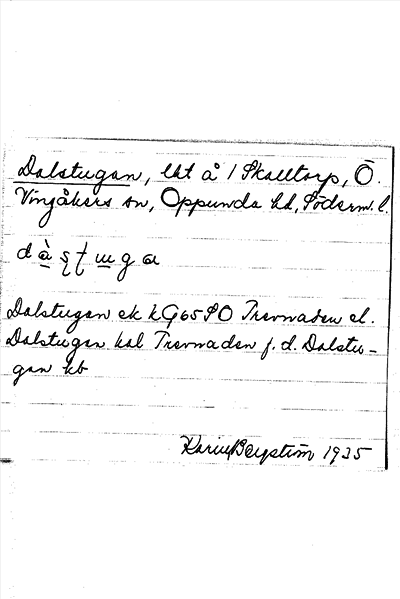 Dalstugan, lht å 1 Skalltorp, Ö.
Vingåkers sn, Oppunda hd, Söderm. l.
Dalstugan ek kG65SO Trevnaden el.
Dalstugan hal Trevnaden f. d. Dalstu-
gan kb
Karin Bergström 1935